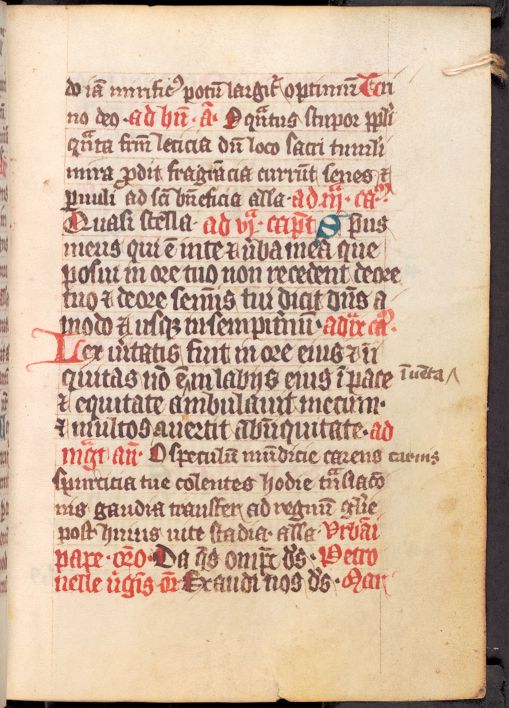 do iā mirific⁹ potū largit̄ optimū Tern
no deo · ad bn̄ · ā · O qͣntus stupor ppl̄i
qͣnta frm̄ leticia dū loco sacri tumuli
mira ꝓdit fragrācia currūt senes ⁊
ꝑuuli ad sc̄i bn̄eficia alla · ad iij · caᵐ
Quasi stella · ad vjͣ · cap̄t Sp̄us
meus qui ē in te ⁊ ūba mea que
posui in ore tuo non recedent de ore
tuo ⁊ de ore seminis tui dicit dn̄s a
modo ⁊ usqꝫ in sempitnū · ad ix caᵐ
Lex ūitatis fuit in ore eius ⁊ in
quitas nō ē in labijs eius ī pace
⁊ equitate ambulauit mecum ·
⁊ multos auertit ab iniquitate · ad
mgͣt an̄ · O speculū mundicie carens
spurcicia tue colentes hodie tnͣslaco̅
nis gaudia transfer ad regnum gl̄ie
post huius uite stadia · alla · Vrbāi
pape · oro̅ · Da qs̄ omp̄t ds̄ · Petro
nelle ūgīs · or̄ Exaudi nos ds̄ · Mar